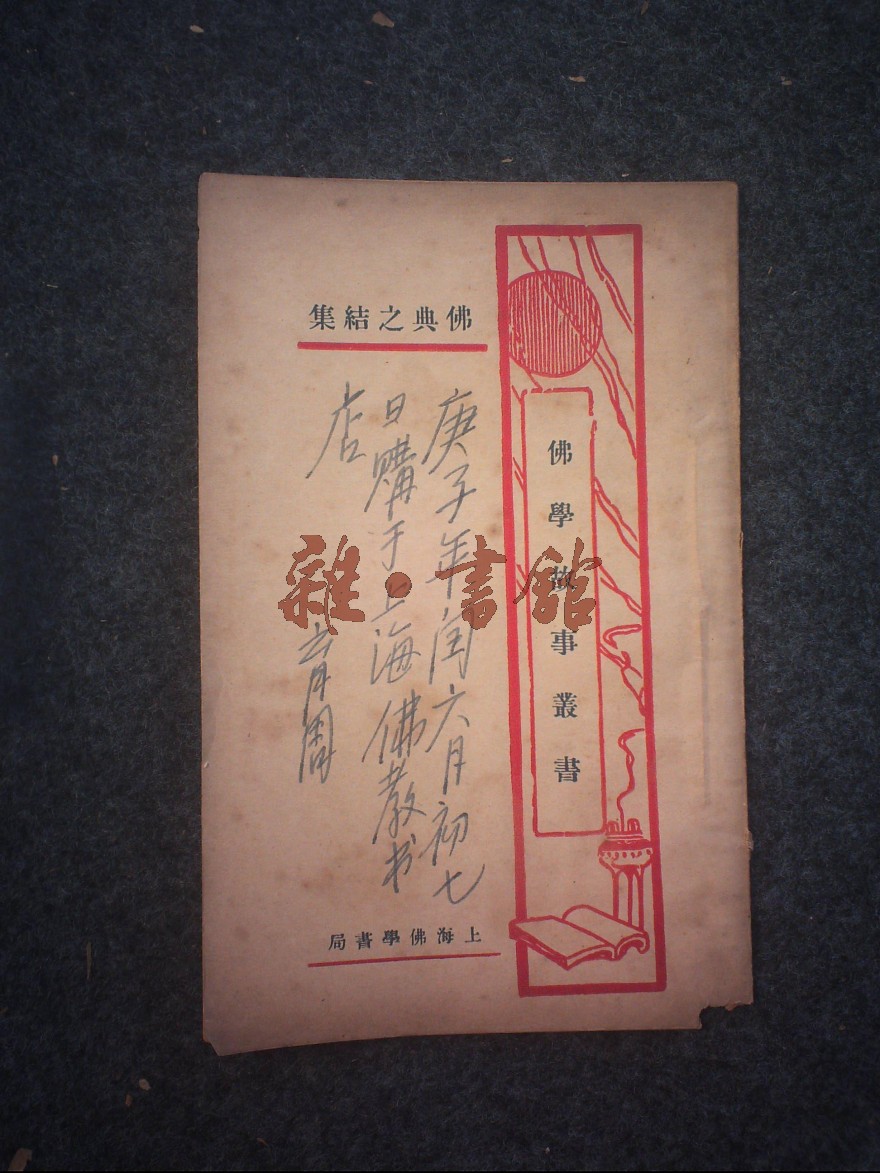 佛典之結集
佛學故事叢書
庚子年闰六月初七
日購于上海佛教书
店
上海佛學書局
雜·書館